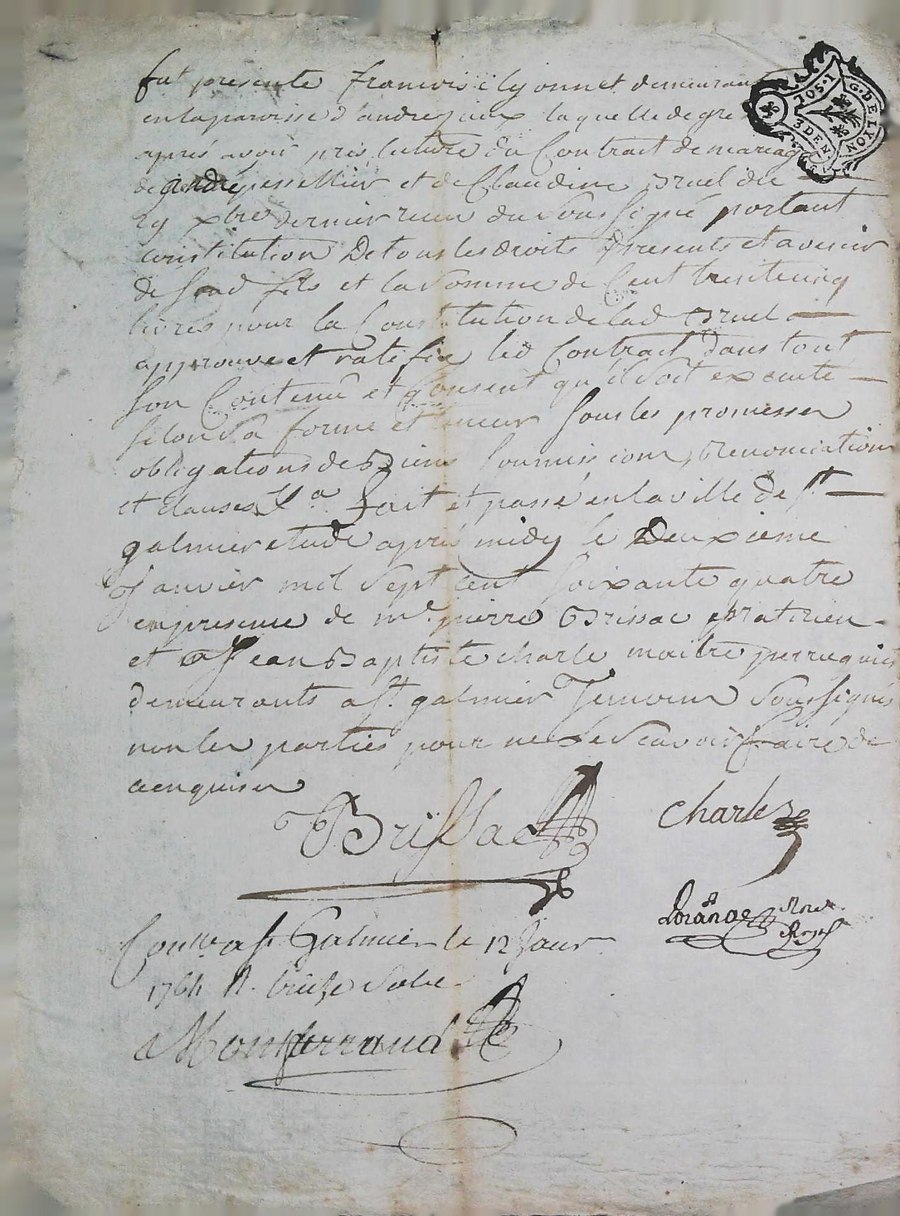 fut presente francoise lyonnet demeurant
en la paroisse d'andrezieux laquelle de gre
après avoir pris lecture du Contrat de mariage
de andre et de Claudine Bruel du
29 xbre dernier receu du Soussigné portant
constitution De tous les droits presents et avenir
de sond fils et la somme de Cent trente cinq
livres pour la Constitution de lad Bruel
approuve et ratifie led Contract dans tout
Son Contenu et Consent qu'il soit execute
selon sa forme et teneur sous les promesses
obligations de Biens soumissions, Renonciations
et clauses Fait et passé en la ville de St
galmier etude après midy le Deuxieme
Janvier mil sept cent soixante quatre
en presence de me pierre Brissac praticien
et Jean Baptiste charle maitre perruquier
demeurants a St galmier Temoins Soussignés
non les parties pour ne le scavoir faire de
ce enquises
Brissac
Charles
Conlle a St Galmier le 12 Janr
1764 R. treize sols
Monferrand
Lorange Nore
Royal
105.1
3 DEN
G. DE LYON